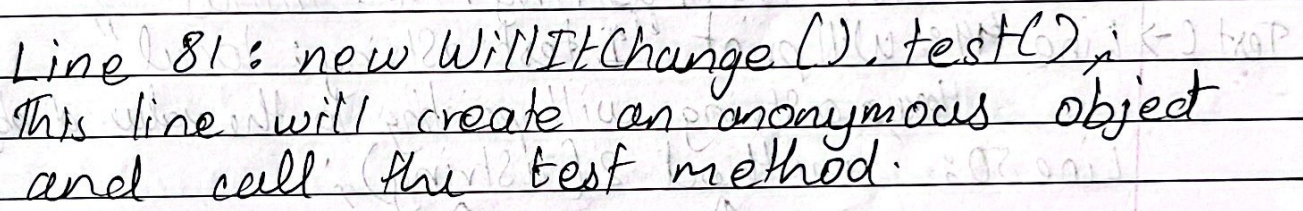 Line 81: new WillItChange().test();
This line will create an anonymous object
and call the test method.